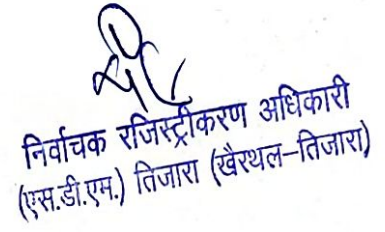 निर्वाचक रजिस्ट्रीकरण अधिकारी
(एस.डी.एम.) तिजारा (खैरथल–तिजारा)